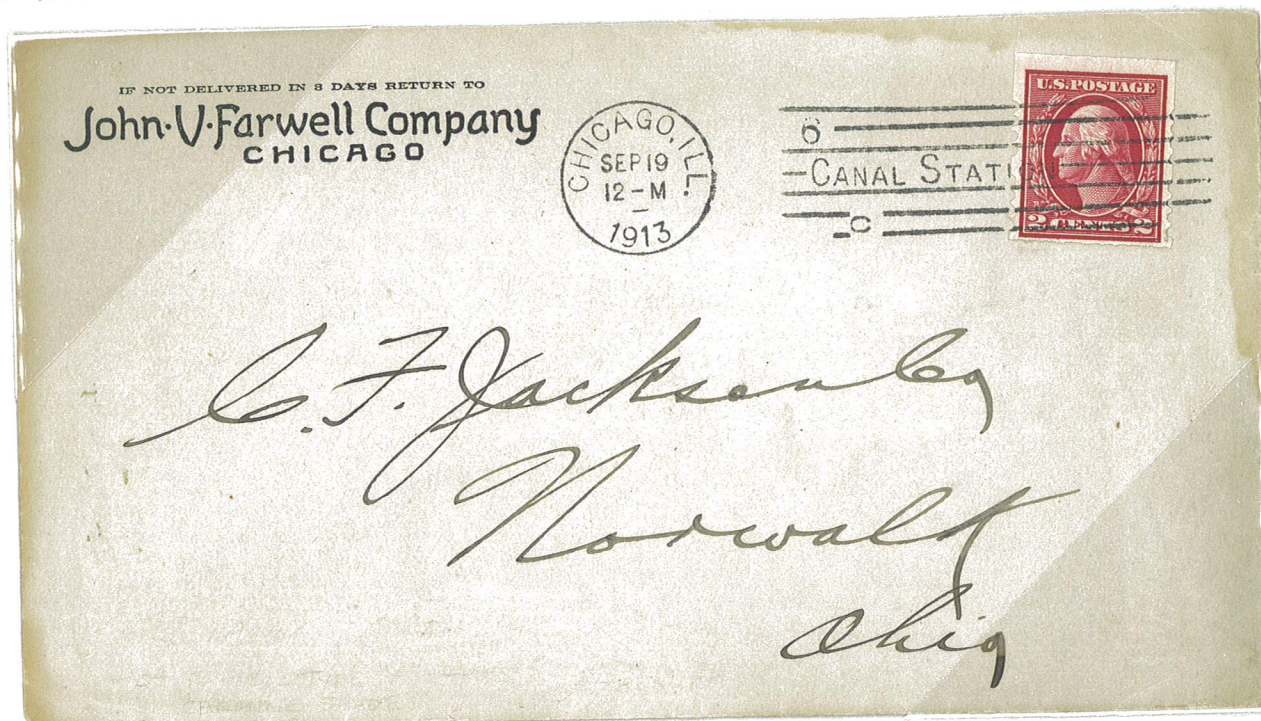 IF NOT DELIVERED IN 3 DAYS RETURN TO
John·V·Farwell Company
CHICAGO
CHICAGO, ILL.
SEP 19
12-M
1913
6
CANAL STATION
C
U.S. POSTAGE
2 CENTS 2
C. F. Jackson Co
Norwalk
Ohio